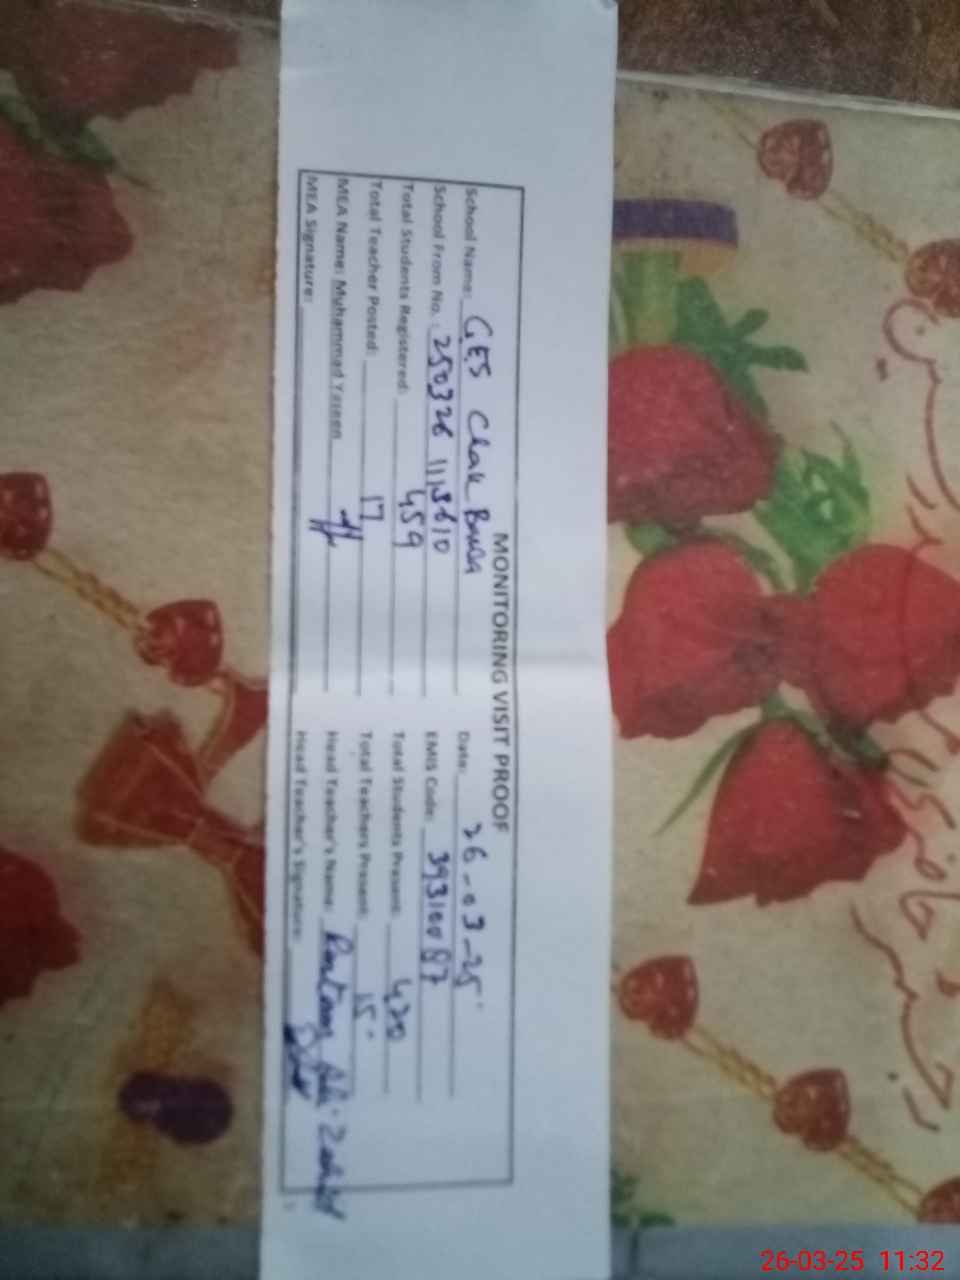 MONITORING VISIT PROOF
School Name: GES Chak Date: 26-03-25
School From No. EMIS Code: 39310087
Total Students Registered: 459 Total Students Present: 420
Total Teacher Posted: 17 Total Teachers Present: 15
MEA Name: Muhammad Yaseen Head Teacher's Name: Ali
MEA Signature: Head Teacher's Signature:
26-03-25 11:32